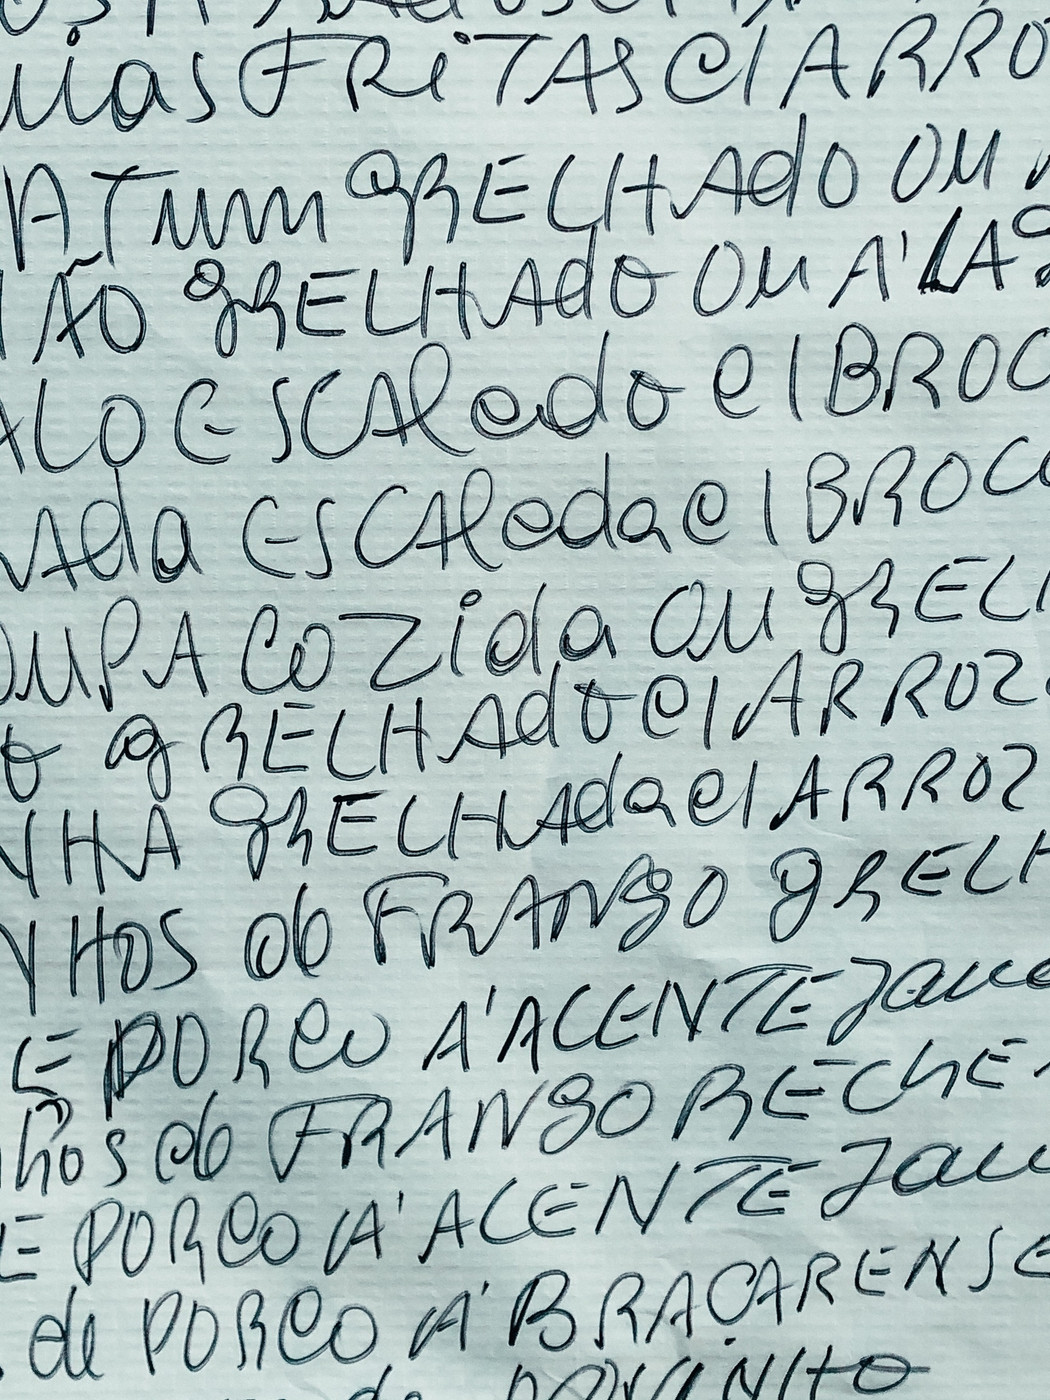 uias FRiTAS C/ ARRO
ATum gRELHAdO OU
ÃO gRELHAdO OU A' LA
ALO ESCAledo C/ BROC
Ada ESCAleda C/ BROCO
OUPA COZida OU gRELH
o gRELHAdo C/ ARROZ
NHA gRELHAda C/ ARROZ
NHOS de FRANgO gRELH
E PORCO A' ALENTEJana
nhos de FRANgO RECHE
E PORCO A' ALENTEJana
de PORCO A' BRACARENSE
de POVINHO